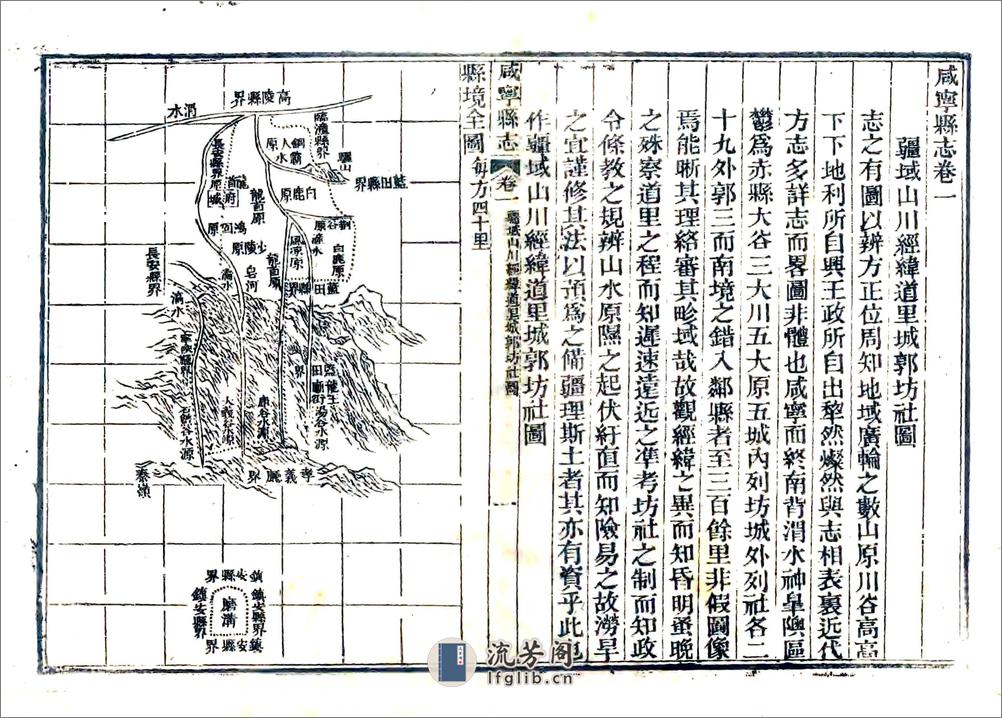 咸寧縣志卷一
疆域山川經緯道里城郭坊社圖
志之有圖以辨方正位周知地域廣輪之數山原川谷高高
下下地利所自興王政所自出犂然燦然與志相表裏近代
方志多詳志而畧圖非體也咸寧面終南背渭水神皋隩區
鬱爲赤縣大谷三大川五大原五城內列坊城外列社各二
十九外郭三而南境之錯入鄰縣者至三百餘里非假圖像
焉能晰其理絡審其畛域哉故觀經緯之異而知昏明蚤晚
之殊察道里之程而知遲速遠近之準考坊社之制而知政
令條教之規辨山水原隰之起伏紆直而知險易之故澇旱
之宜謹修其法以預爲之備疆理斯土者其亦有資乎此也
作疆域山川經緯道里城郭坊社圖
咸寧縣志
卷一
疆域山川經緯道里城郭坊社圖
縣境全圖每方四十里
高陵縣界
渭水
臨潼縣界
驪山
銅人原
霸水
藍田縣界
白鹿原
長安縣界
龍首原
省城
府
荊谷
白鹿原
滻水
鴻固原
少陵原
皂河
潏水
藍田縣界
長安縣界
滈水
湯谷水源
庫谷水源
大義谷水源
石鱉谷水源
孝義廳界
秦嶺
鎮安縣界
鎮安縣界
磨溝
鎮安縣界
鎮安縣界
流芳阁
lfglib.cn